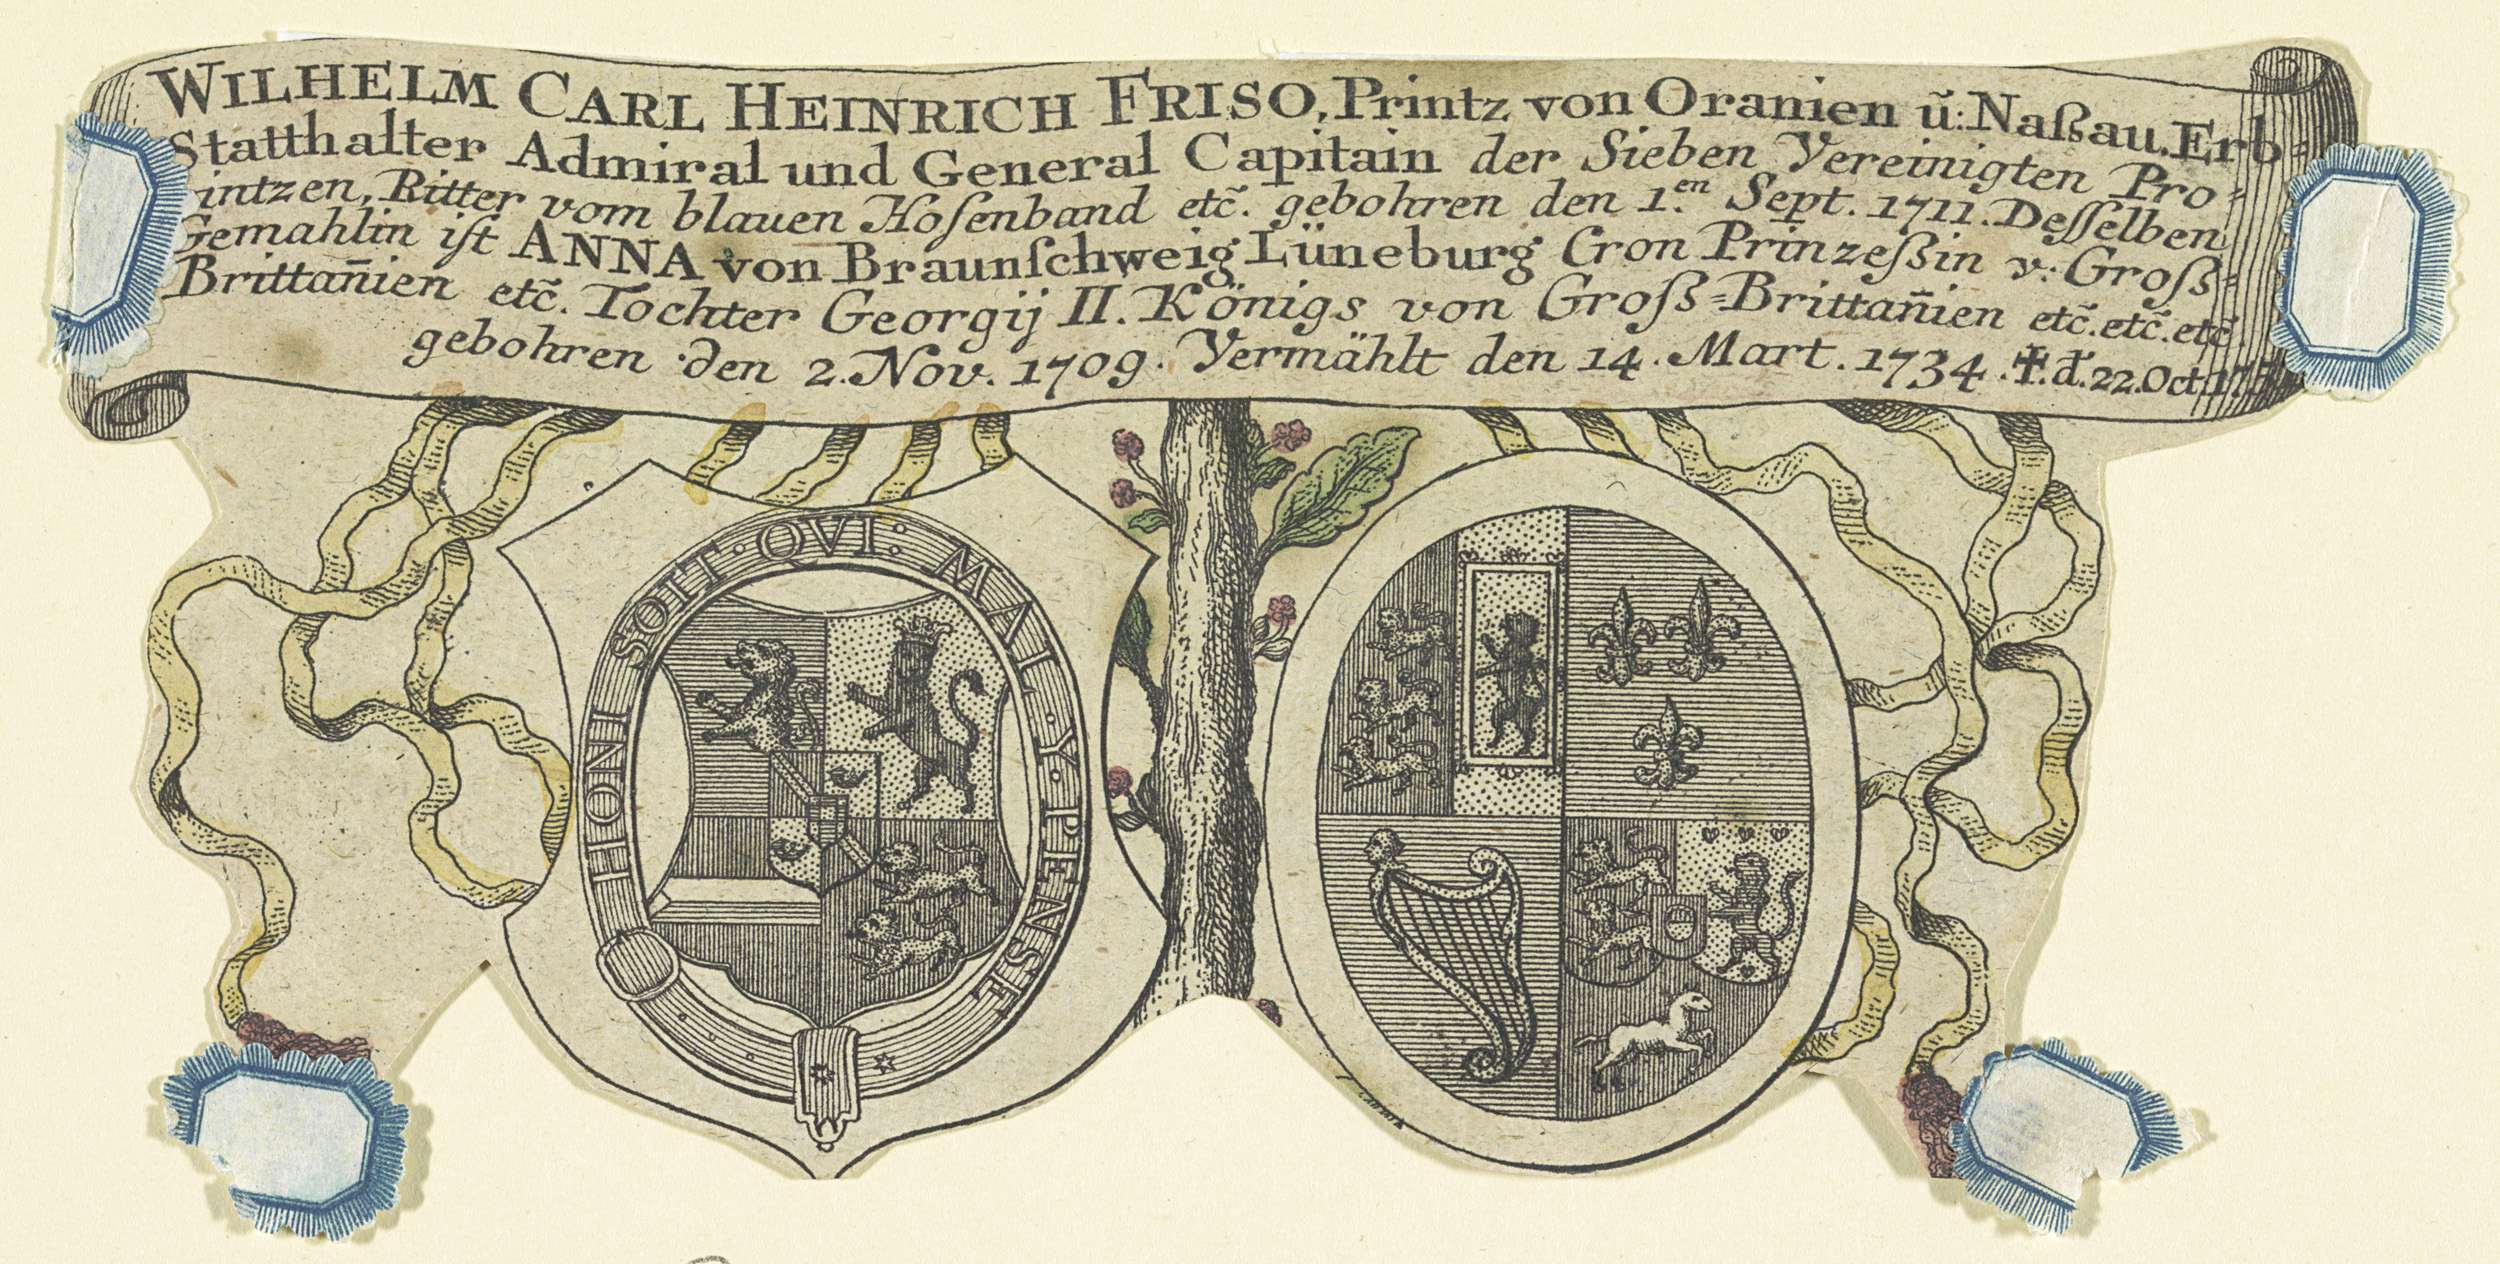 WILHELM CARL HEINRICH FRISO, Printz von Oranien ũ: Naßau. Erb-
Statthalter Admiral und General Capitain der Sieben Vereinigten Pro-
intzen, Ritter vom blauen Hosenband etc̃. gebohren den 1.en Sept. 1711. Desselben
Gemahlin ist ANNA von Braunschweig Lüneburg Cron Prinzeßin v: Groß-
Brittañien etc̃. Tochter Georgij II. Königs von Groß-Brittañien etc̃. etc̃. etc̃.
gebohren den 2. Nov. 1709. Vermählt den 14. Mart. 1734. ✝. d. 22. Oct.
HONI SOIT QVI MAL Y PENSE